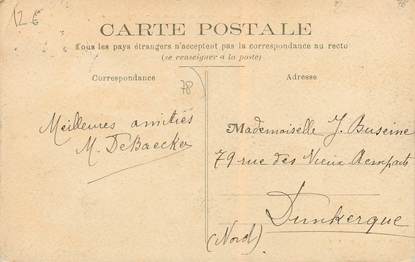 12 €
CARTE POSTALE
Tous les pays étrangers n'acceptent pas la correspondance au recto
(se renseigner à la poste)
Correspondance
Adresse
78
Meilleures amitiés
M. DeBaecker
Mademoiselle J. Buseine
79 rue des Vieux Remparts
Dunkerque
(Nord)